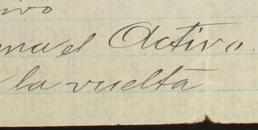 ivo.
ma el Activo.
la vuelta